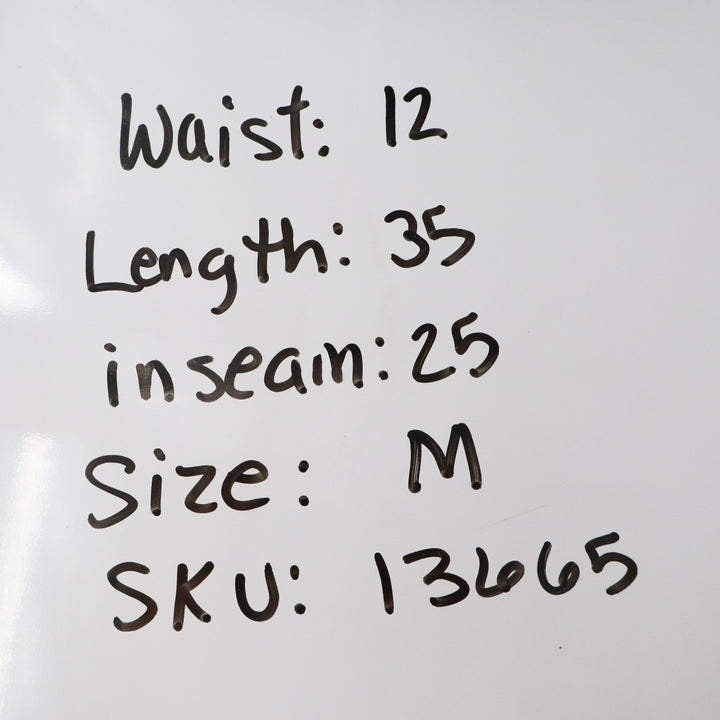 Waist: 12
Length: 35
inseam: 25
Size: M
SKU: 13665